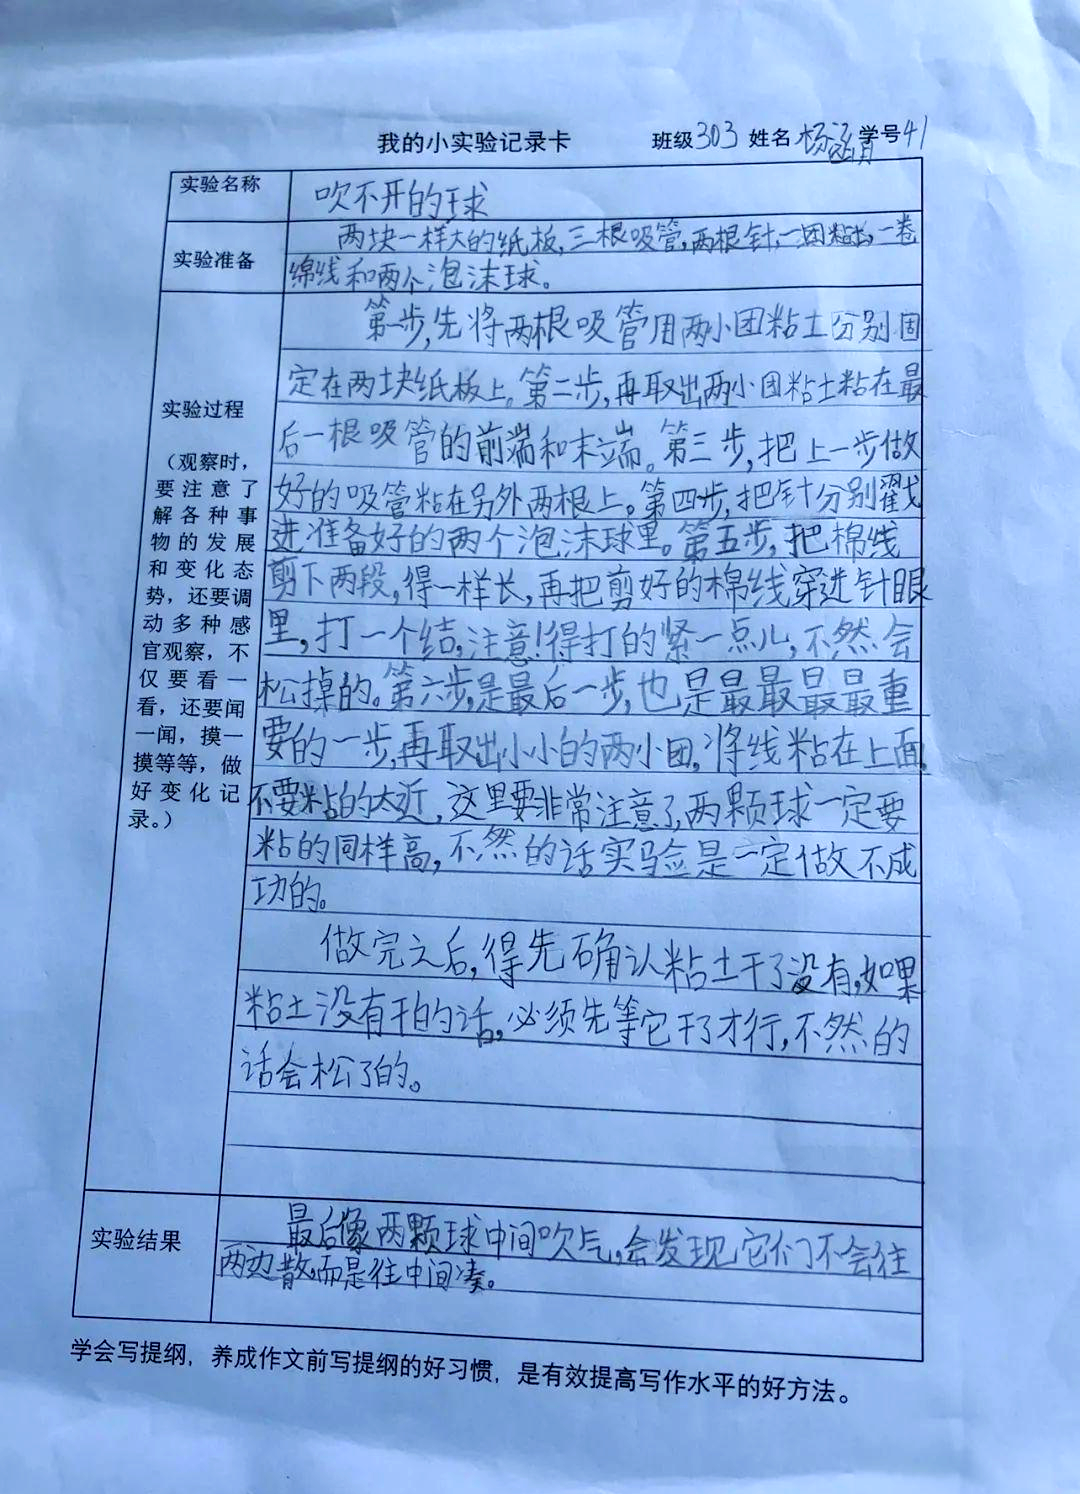 我的小实验记录卡 班级303 姓名杨涵 学号41
实验名称 吹不开的球
实验准备 两块一样大的纸板,三根吸管,两根针,一团粘土,一卷
绵线和两个泡沫球。
第一步,先将两根吸管用两小团粘土分别固
定在两块纸板上。第二步,再取出两小团粘土粘在最
后一根吸管的前端和末端。第三步,把上一步做
好的吸管粘在另外两根上。第四步,把针分别戳
进准备好的两个泡沫球里。第五步,把棉线
剪下两段,得一样长,再把剪好的棉线穿进针眼
里,打一个结,注意!得打的紧一点儿,不然会
松掉的。第六步,是最后一步,也是最最最最重
要的一步,再取出小小的两小团,将线粘在上面,
不要粘的太近,这里要非常注意了,两颗球一定要
粘的同样高,不然的话实验是一定做不成
功的。
做完之后,得先确认粘土干了没有,如果
粘土没有干的话,必须先等它干了才行,不然的
话会松了的。
实验过程
(观察时,
要注意了
解各种事
物的发展
和变化态
势,还要调
动多种感
官观察,不
仅要看一
看,还要闻
一闻,摸一
摸等等,做
好变化记
录。)
实验结果 最后像两颗球中间吹气,会发现它们不会往
两边散,而是往中间凑。
学会写提纲,养成作文前写提纲的好习惯,是有效提高写作水平的好方法。